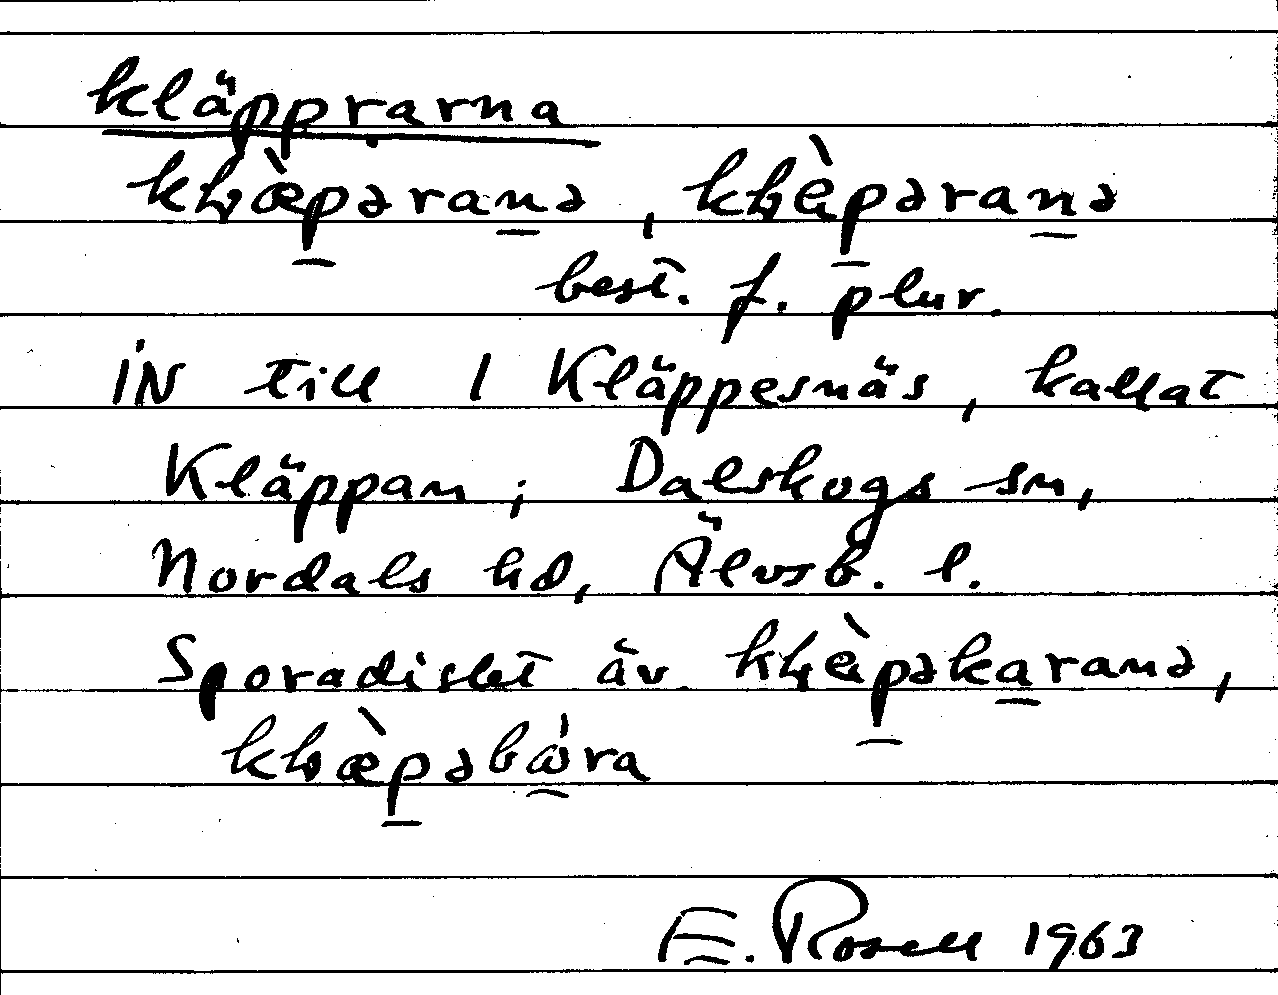 kläpprarna
kɽæ̀pərana, kɽè̞pərana
best. f. plur.
iN till 1 Kläppesnäs, kallat
Kläppan; Dalskogs sn,
Nordals hd, Älvsb. l.
Sporadiskt äv. kɽè̞pəkarana,
kɽæ̀pəbὼra
E. Rosell 1963